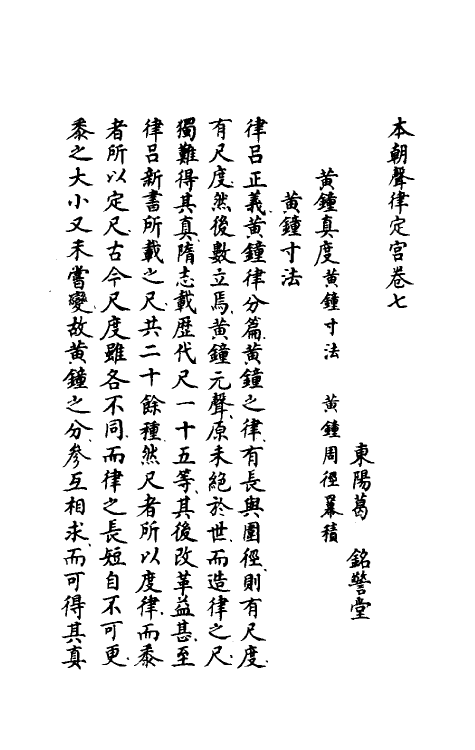 本朝聲律定宮卷七
東陽葛 銘警堂
黃鐘真度黃鐘寸法 黃鐘周徑冪積
黃鐘寸法
律呂正義黃鐘律分篇黃鐘之律有長與圍徑則有尺度
有尺度然後數立焉黃鐘元聲原未絕於世而造律之尺
獨難得其真隋志載歷代尺一十五等其後改革益甚至
律呂新書所載之尺共二十餘種然尺者所以度律而黍
者所以定尺古今尺度雖各不同而律之長短自不可更
黍之大小又未嘗變故黃鐘之分參互相求而可得其真